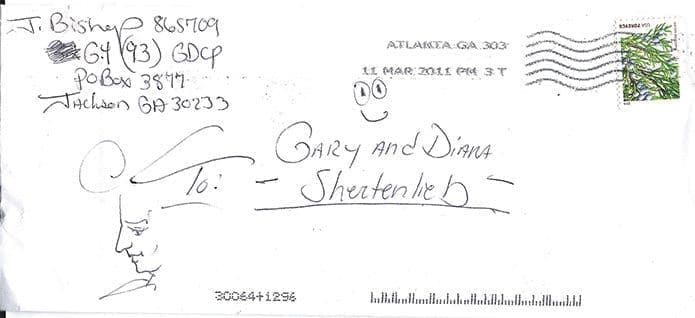 J. Bishop 865709
G4 (93) GDCP
PO Box 3877
Jackson GA 30233
ATLANTA GA 303
11 MAR 2011 PM 3 T
To:
GARY And DIANA
- Shertenlieb -
30064+1296